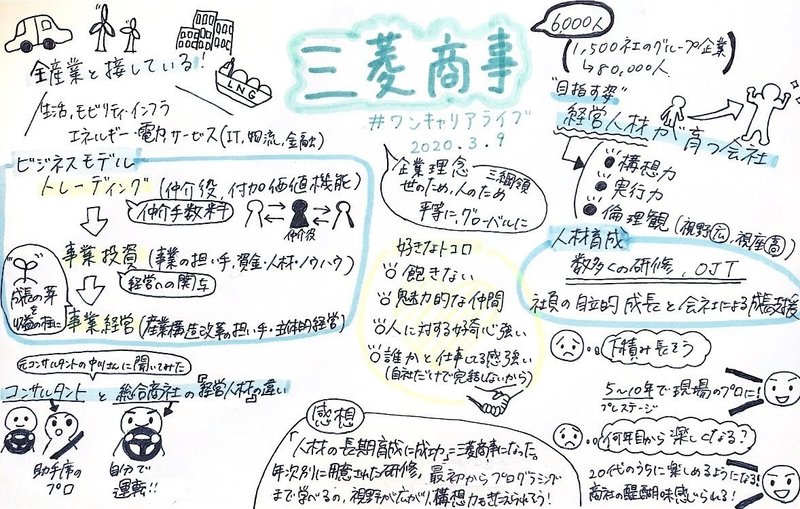 三菱商事
#ワンキャリアライブ
2020.3.9
全産業と接している!
LNG
生活,モビリティ・インフラ
エネルギー・電力,サービス(IT,物流,金融)
ビジネスモデル
トレーディング(仲介役,付加価値機能)
仲介手数料
仲介役
事業投資(事業の担い手,資金・人材・ノウハウ)
経営への関与
成長の芽
を
収益の柱に
事業経営(産業構造改革の担い手・主体的経営)
元コンサルタントの中川さんに聞いてみた
コンサルタントと総合商社の「経営人材」の違い
助手席の
プロ
自分で
運転!!
企業理念 三綱領
世のため,人のため
平等に,グローバルに
好きなトコロ
飽きない
魅力的な仲間
人に対する好奇心強い
誰かと仕事してる感強い
(自社だけで完結しないから)
感想
「人材の長期育成に成功」=三菱商事になった。
年次別に用意された研修,最初からプログラミング
まで学べるの,視野が広がり,構想力も
6,000人
1,500社のグループ企業
↳80,000人
"目指す姿"
経営人材が育つ会社
構想力
実行力
倫理観(視野広,視座高)
人材育成
数多くの研修,OJT
社員の自立的成長と会社による成長支援
下積み長そう
5〜10年で現場のプロに!
プレステージ
何年目から楽しくなる?
20代のうちに楽しめるようになる!
商社の醍醐味感じられる!